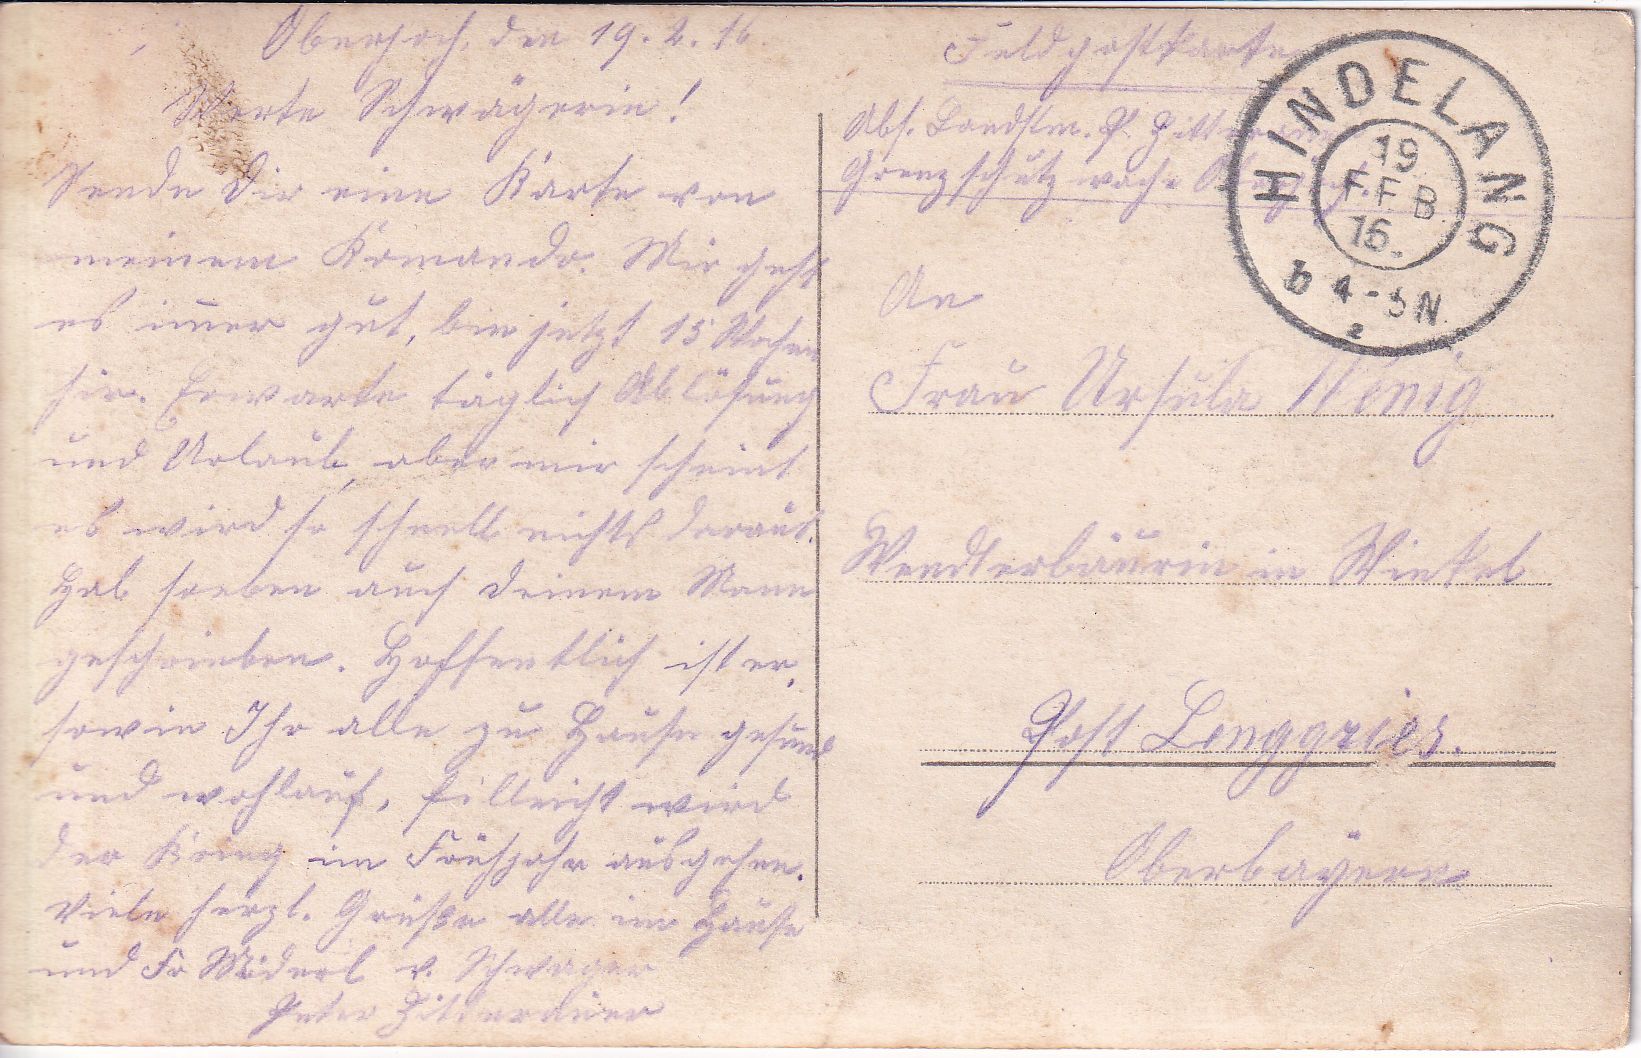 Oberjoch, den 19.2.16.
Werte Schwägerin!
Sende Dir eine Karte von
meinem Komando. Mir geht
es im̅er gut, bin jetzt 15 Wochen
hir. Erwarte täglich Ablösung
und Urlaub, aber mir scheint
es wird so schnell nichts daraus.
Hab soeben auch deinem Mann
geschrieben. Hoffentlich ist er,
sowie Ihr alle zu Hause gesund
und wohlauf, filleicht wird
der Krieg im Frühjahr ausgehen.
Viele herzl. Grüße alle im Hause
und Fr v. Schwager
Peter
Feldpostkarte
Abs. Landstm. P.
Grenzschutzwache Oberjoch.
HINDELANG
19
FEB.
16.
b 4-5 N.
2
An
Frau Ursula
in Winkel
Post Lenggries.
Oberbayern